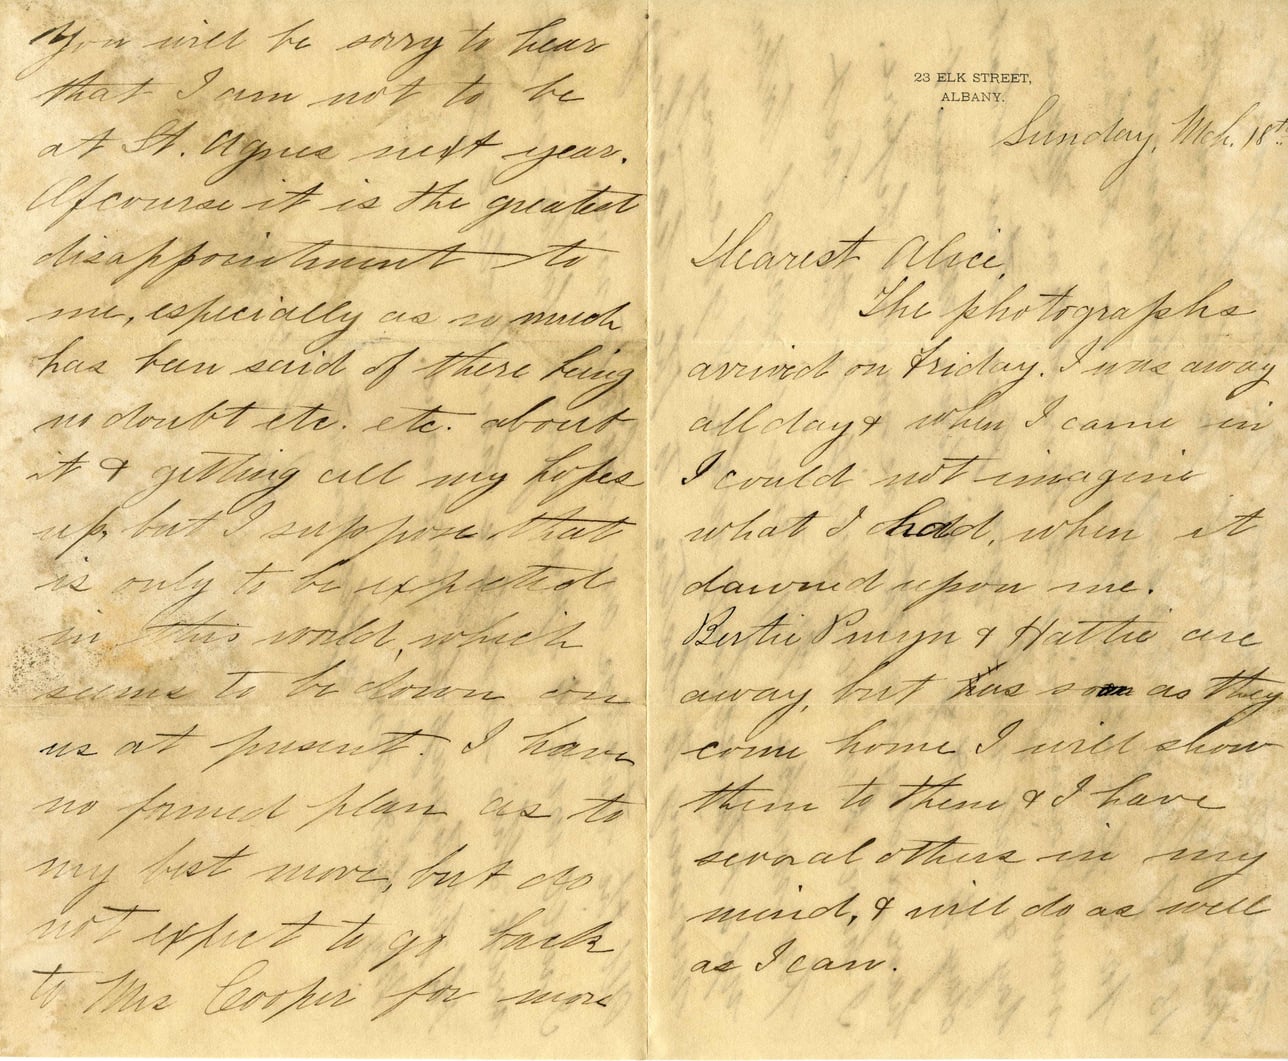 23 ELK STREET,
ALBANY.
Sunday, Mch. 18th.
Dearest Alice,
The photographs
arrived on Friday. I was away
all day & when I came in
I could not imagine
what I had, when it
dawned upon me.
Bertie Pruyn & Hattie are
away, but as soon as they
come home I will show
them to them & I have
several others in my
mind, & will do as well
as I can.
You will be sorry to hear
that I am not to be
at St. Agnes next year.
Ofcourse it is the greatest
disappointment to
me, especially as so much
has been said of there being
no doubt etc. etc. about
it & getting all my hopes
up, but I suppose that
is only to be expected
in this world, which
seems to be down on
us at present. I have
no formed plan as to
my best move, but do
not expect to go back
to Mrs Cooper for more